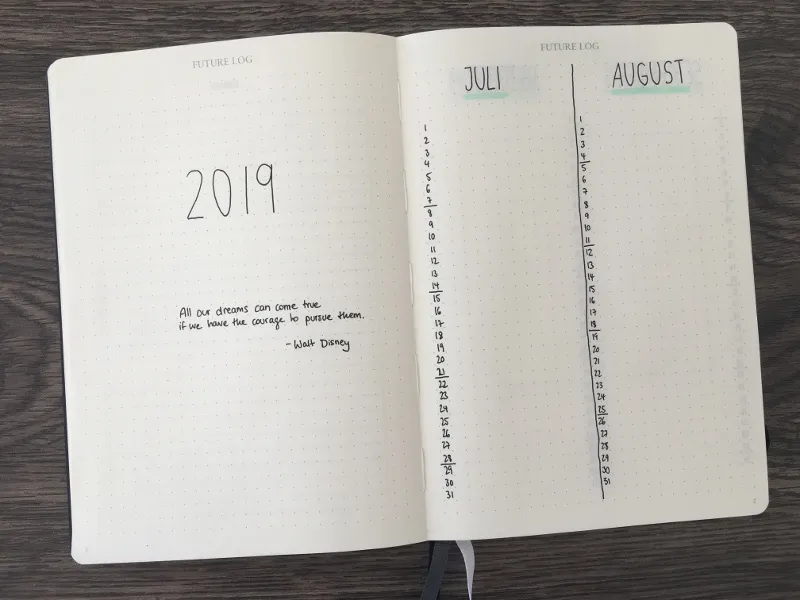 FUTURE LOG
2019
All our dreams can come true
if we have the courage to pursue them.
- Walt Disney
FUTURE LOG
JULI
1
2
3
4
5
6
7
8
9
10
11
12
13
14
15
16
17
18
19
20
21
22
23
24
25
26
27
28
29
30
31
AUGUST
1
2
3
4
5
6
7
8
9
10
11
12
13
14
15
16
17
18
19
20
21
22
23
24
25
26
27
28
29
30
31